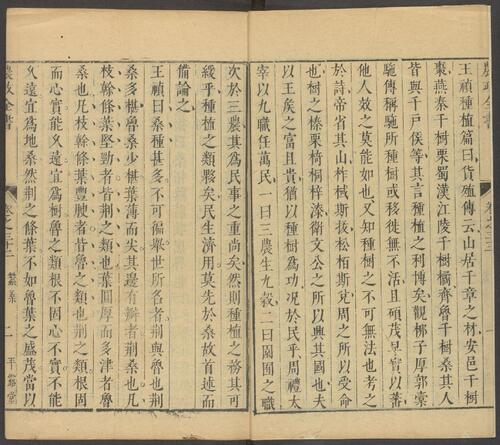 王禎種植篇曰貨殖傳云山居千章之材安邑千樹
棗燕秦千樹栗蜀漢江陵千樹橘齊魯千樹桑其人
皆與千戶侯等其言種植之利博矣觀柳子厚郭橐
駞傳稱駞所種樹或移徙無不活且碩茂早實以蕃
他人效之莫能如也又知種樹之不可無法也考之
於詩帝省其山柞棫斯拔松栢斯兌周之所以受命
也樹之榛栗椅桐梓漆衛文公之所以興其國也夫
以王矦之富且貴猶以種樹為功况於民乎周禮太
宰以九職任萬民一曰三農生九穀二曰園圃之職
次於三農其為民事之重尚矣然則種植之務其可
緩乎種植之類夥矣民生濟用莫先於桑故首述而
備論之
王禎曰桑種甚多不可徧舉世所名者荆與魯也荆
桑多椹魯桑少椹葉薄而尖其邊有瓣者荆桑也凡
枝幹條葉堅勁者皆荆之類也葉圓厚而多津者魯
桑也凡枝幹條葉豐腴者皆魯之類也荆之類根固
而心實能久遠宜為樹魯之類根不固心不實不能
久遠宜為地桑然荆之條葉不如魯葉之盛茂當以
農政全書 卷之三十二 蠶桑 二 平露堂